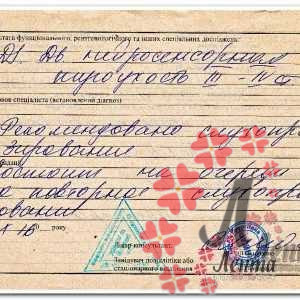 льтати функціонального, рентгенологічного та інших спеціальних досліджень:
DS. Дв. нейросенсорная
тугоухость III - IV ст
новок спеціаліста (встановлений діагноз)
Рекомендовано слухопро
зирование
на очереди
на повторное слухопро
Лікар-консультант
Завідувач поліклініки або
стаціонарного відділення
Лента